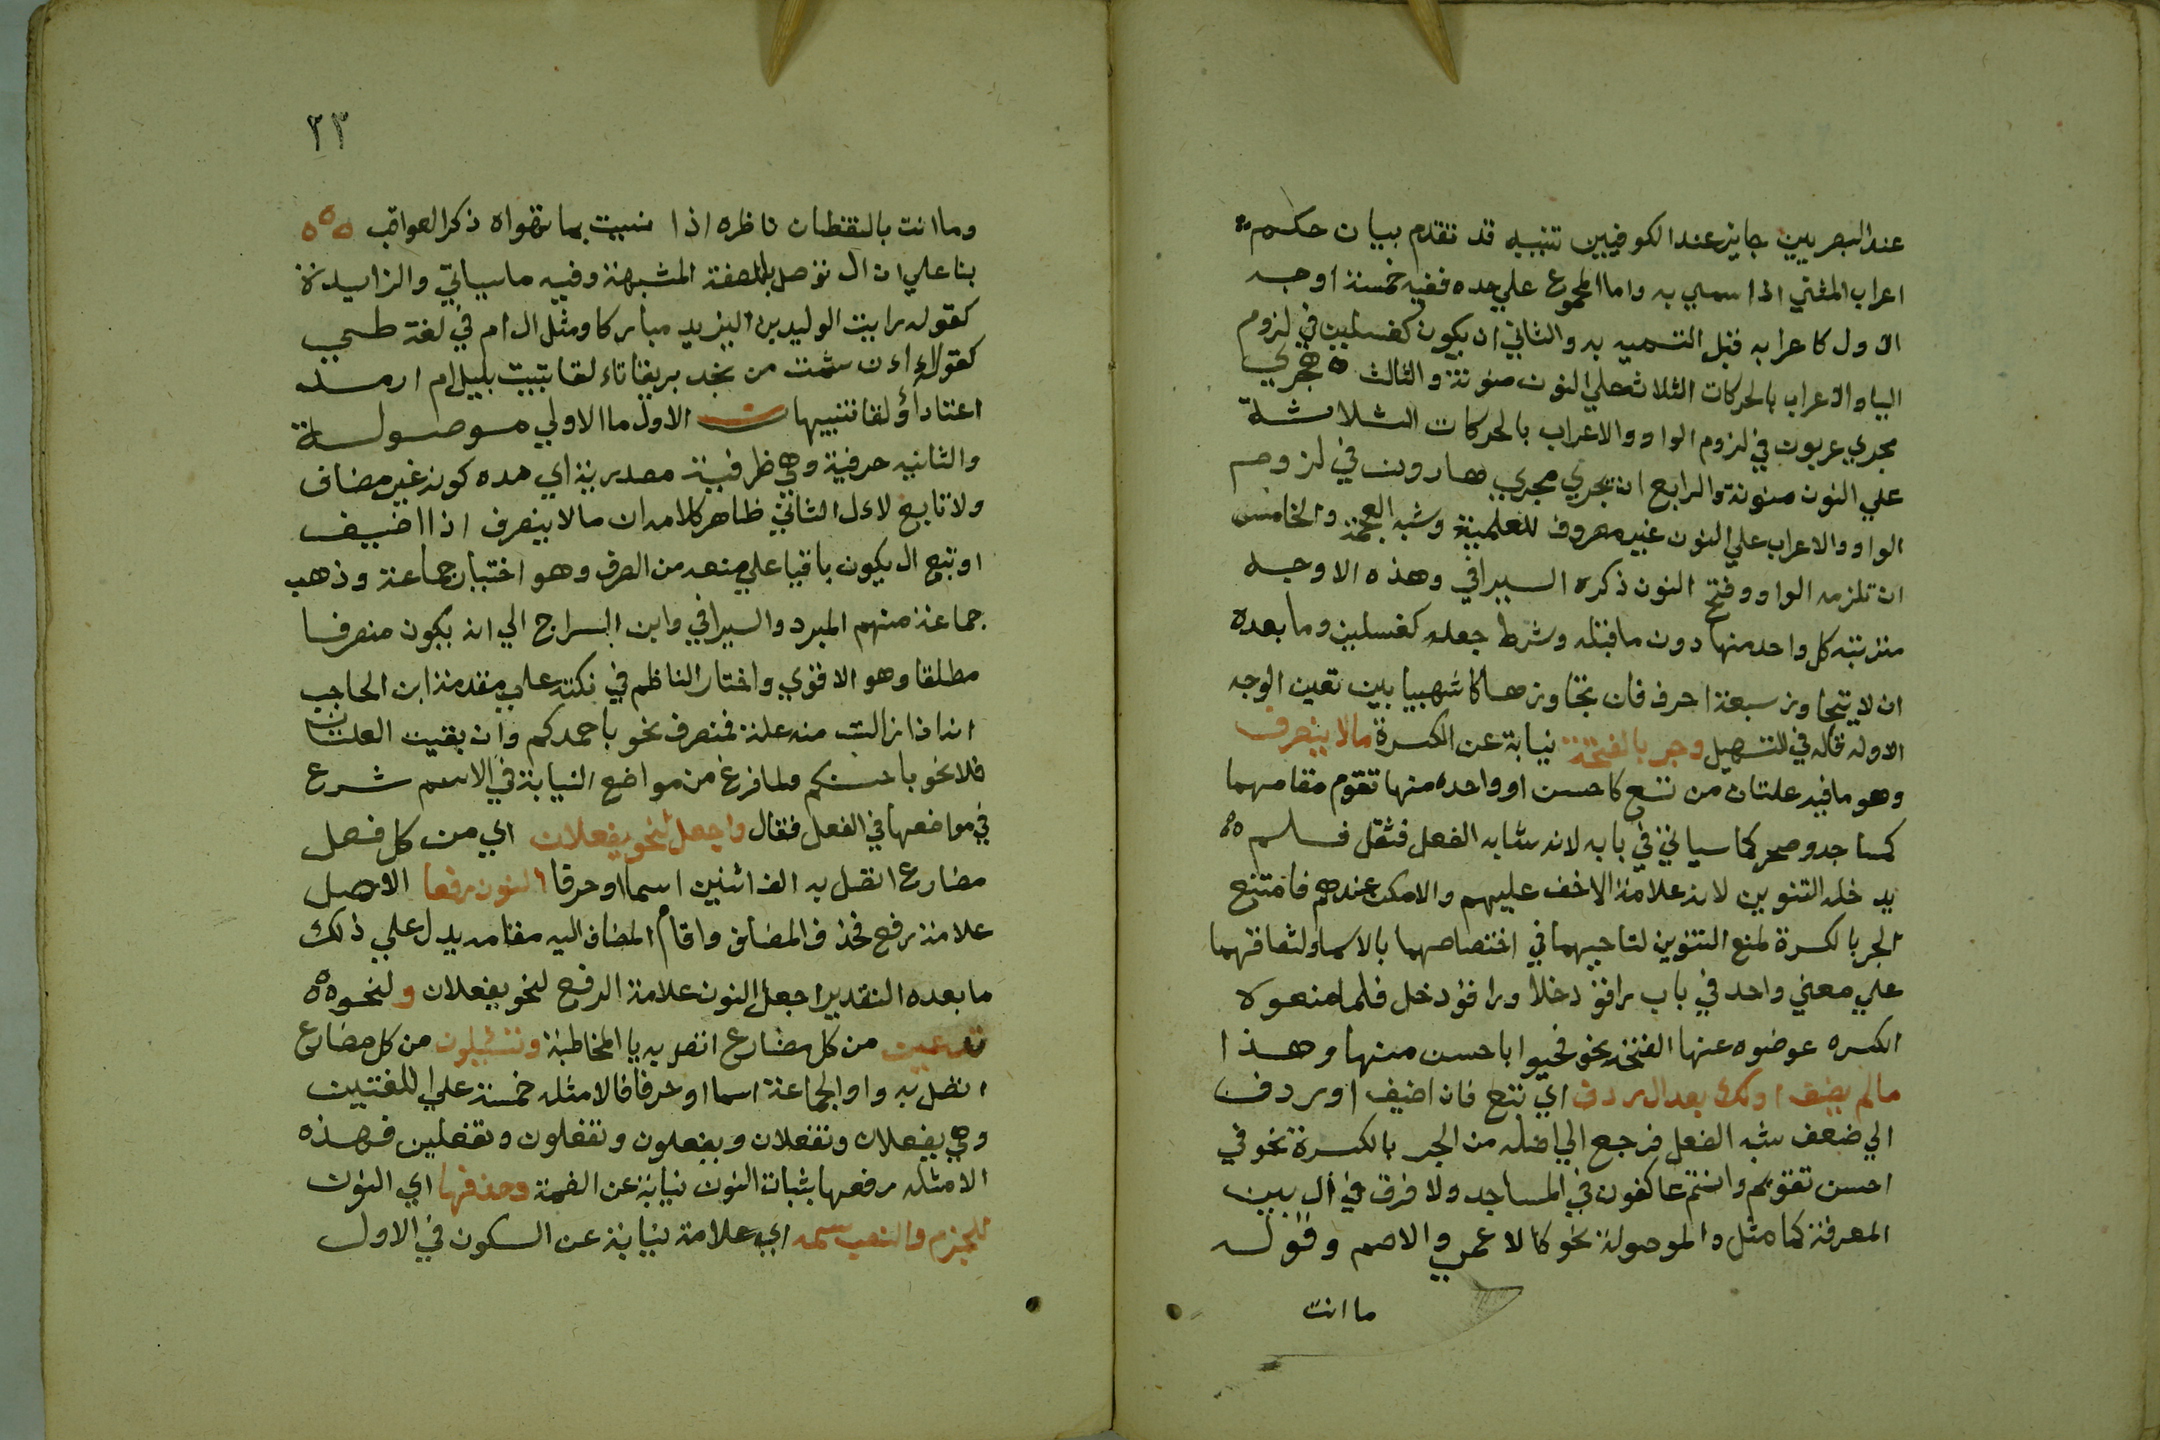 عند البصريين جايز عند الكوفيين تنبيه قد تقدم بيان حكم
اعراب المثني اذا سمي به واما المجموع علي حده ففيه خمسة اوجه
الاول كاعرابه قبل التسميه به والثاني ان يكون كغسلين في لزوم
اليا والاعراب بالحركات الثلاث علي النون منونة والثالث ه يجري
مجري عربون في لزوم الواو والاعراب بالحركات الثلاثة
علي النون منونة والرابع ان يجري مجري هارون في لزوم
الواو والاعراب علي النون غير مصروف للعلمية وشبه العجمة والخامس
ان تلزمه الواو وفتح النون ذكره السيرافي وهذه الاوجه
مترتبه كل واحد منها دون ما قبله وشرط جعله كغسلين وما بعده
ان لا يتجاوز سبعة احرف فان تجاوزها كاشهيبابين تعين الوجه
الاول قاله في التسهيل وجر بالفتحة نيابة عن الكسرة مالا ينصرف
وهو ما فيه علتان من تسع كاحسن او واحده منها تقوم مقامهما
كمساجد وصحر كما سياتي في بابه لانه شابه الفعل فثقل فلم
يدخله التنوين لانه علامة الاخف عليهم والامكن عندهم فامتنع
الجر بالكسرة لمنع التنوين لتاخيهما في اختصاصهما بالاسما ولتعاقبهما
علي معني واحد في باب راقود خلا وراقود خل فلما منعوه
الكسره عوضوه عنها الفتحة نحو فحيوا باحسن منها وهذا
مالم يضف او يك بعد ال ردف اي تتبع فان اضيف او ردف
الي ضعف شبه الفعل فرجع الي اصله من الجر بالكسرة نحو في
احسن تقويم وانتم عاكفون في المساجد ولا فرق في ال بين
المعرفة كما مثل والموصولة نحو كالاعمي والاصم وقوله
ما انت
٢٣
وما انت باليقظان ناظره اذا نسيت بما تهواه ذكر العواقب
بنا علي ان ال توصل بالصفة المشبهة وفيه ما سياتي والزايدة
كقوله رايت الوليد بن اليزيد مباركا ومثل ال ام في لغة طي
كقوله اان شمت من نجد بريقا تالقا تبيت بليل ام ارمد
اعتاد اولقا تنبيهات الاول ما الاولي موصولة
والثانيه حرفية وهي ظرفية مصدرية اي مده كونه غير مضاف
ولا تابع لال الثاني ظاهر كلامه ان مالا ينصرف اذا اضيف
او تبع ال يكون باقيا علي منعه من الصرف وهو اختيار جماعة وذهب
جماعة منهم المبرد والسيرافي وابن السراج الي انه يكون منصرفا
مطلقا وهو الاقوي واختار الناظم في نكته علي مقدمة ابن الحاجب
انه اذا زالت منه علة فمنصرف نحو باحمدكم وان بقيت العلتان
فلا نحو باحسنكم ولما فرغ من مواضع النيابة في الاسم شرع
في مواضعها في الفعل فقال واجعل لنحو يفعلان اي من كل فعل
مضارع اتصل به الف اثنين اسما او حرفا النون رفعا الاصل
علامة رفع فحذف المضاف واقام المضاف اليه مقامه يدل علي ذلك
ما بعده التقدير اجعل النون علامة الرفع لنحو يفعلان ولنحو
تدعين من كل مضارع اتصل به يا المخاطبة وتسئلون من كل مضارع
اتصل به واو الجماعة اسما او حرفا فالامثله خمسة علي اللغتين
وهي يفعلان وتفعلان ويفعلون وتفعلون وتفعلين فهذه
الامثله رفعها بثبات النون نيابة عن الضمة وحذفها اي النون
للجزم والنصب سمه اي علامة نيابة عن السكون في الاول